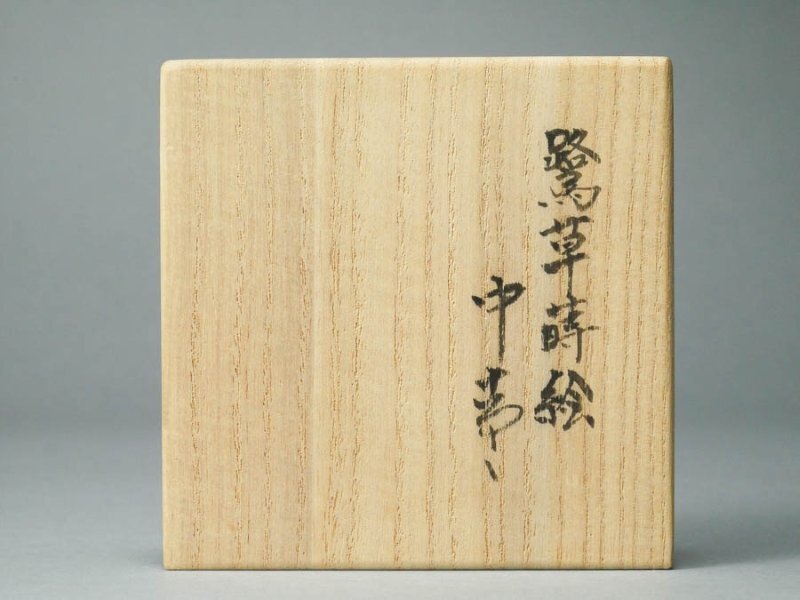 鷺草蒔絵
中棗